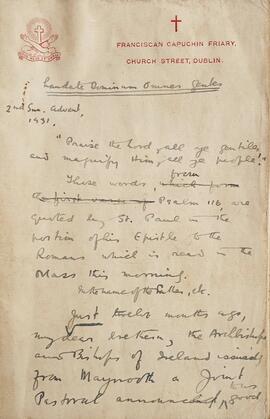 FRANCISCAN CAPUCHIN FRIARY,
CHURCH STREET, DUBLIN.
Laudate Dominum Omnes Gentes
2nd Sun. Advent,
1931.
"Praise the Lord, all ye gentiles
and magnify Him, all ye people."
from
These words, which form
the first verse of Psalm 116, are
quoted by St. Paul in the
portion of his Epistle to the
Romans which is read in the
Mass this morning.
In the name of the Father, etc.
Just twelve months ago,
my dear brethern, the Archbishops
and Bishops of Ireland issued
from Maynooth a Joint
Pastoral announcing good